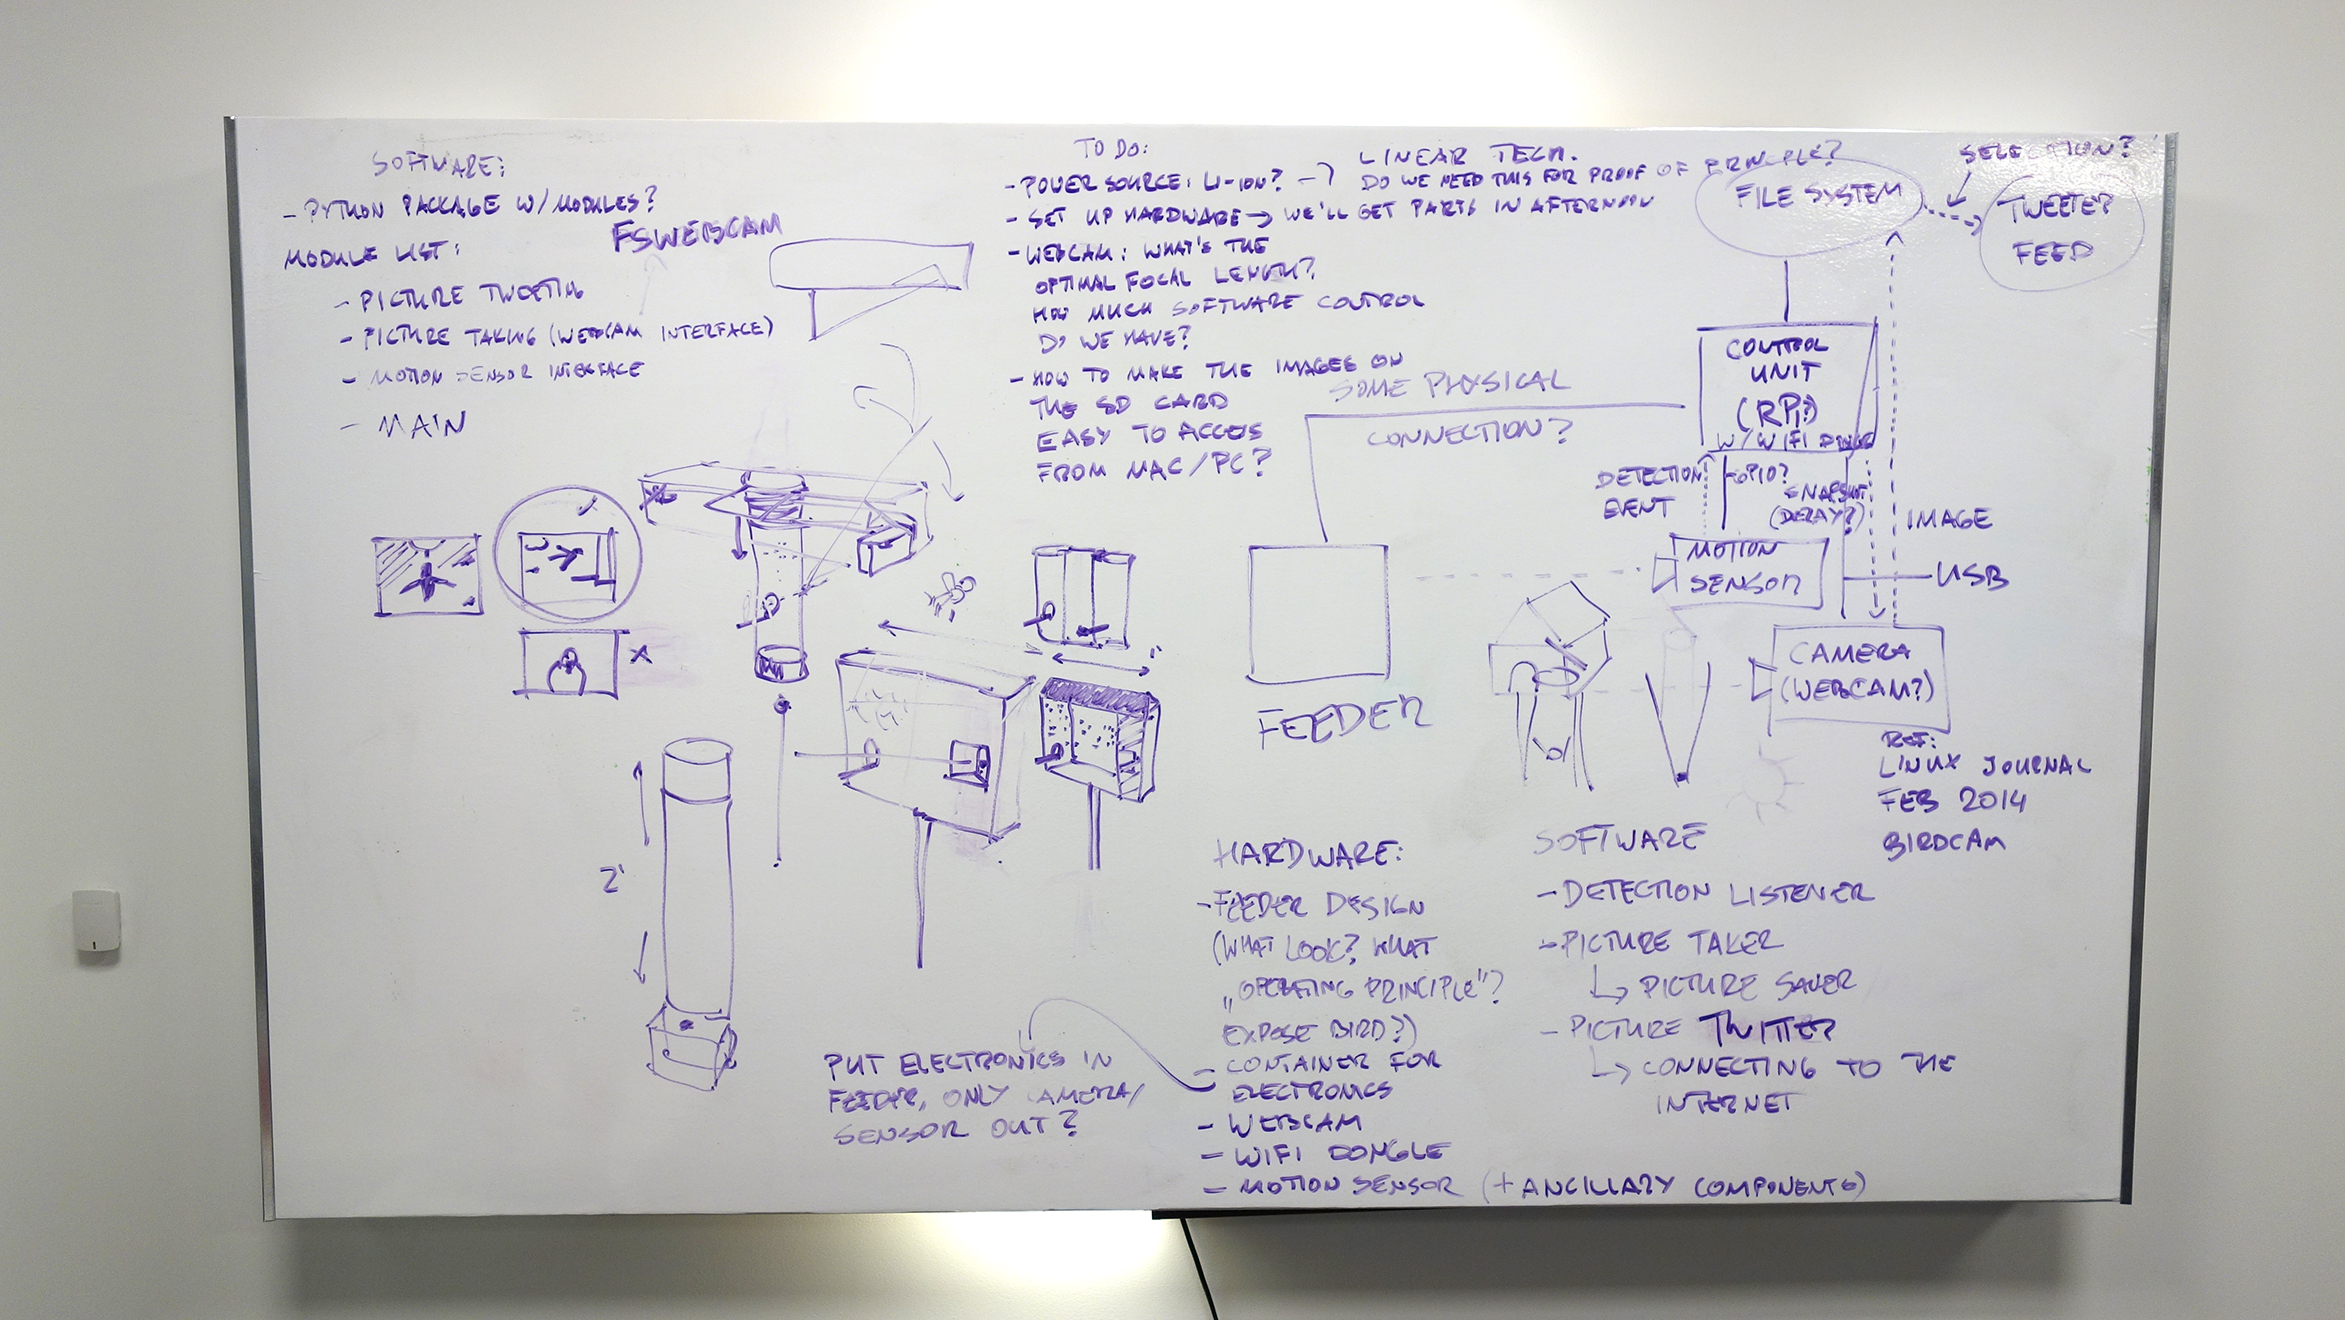 SOFTWARE:
- PYTHON PACKAGE W/ MODULES?
MODULE LIST:
FSWEBCAM
- PICTURE TWEETING
- PICTURE TAKING (WEBCAM INTERFACE)
- MOTION SENSOR INTERFACE
- MAIN
2'
1'
X
PUT ELECTRONICS IN
FEEDER, ONLY CAMERA/
SENSOR OUT?
TO DO:
- POWER SOURCE: LI-ION? → LINEAR TECH.
DO WE NEED THIS FOR PROOF OF PRINCIPLE?
- SET UP HARDWARE → WE'LL GET PARTS IN AFTERNOON
- WEBCAM: WHAT'S THE
OPTIMAL FOCAL LENGTH?
HOW MUCH SOFTWARE CONTROL
DO WE HAVE?
- HOW TO MAKE THE IMAGES ON
THE SD CARD
EASY TO ACCESS
FROM MAC/PC?
SOME PHYSICAL
CONNECTION?
FEEDER
FILE SYSTEM
SELECTION?
TWEETER
FEED
CONTROL
UNIT
(RPi?)
W/ WIFI DONGLE
DETECTION
EVENT
GPIO?
SNAPSHOT
(DELAY?)
IMAGE
MOTION
SENSOR
USB
CAMERA
(WEBCAM?)
REF:
LINUX JOURNAL
FEB 2014
BIRDCAM
HARDWARE:
- FEEDER DESIGN
(WHAT LOOK? WHAT
„OPERATING PRINCIPLE"?
EXPOSE BIRD?)
- CONTAINER FOR
ELECTRONICS
- WEBCAM
- WIFI DONGLE
- MOTION SENSOR (+ ANCILLARY COMPONENTS)
SOFTWARE
- DETECTION LISTENER
- PICTURE TAKER
↳ PICTURE SAVER
- PICTURE TWITTER
↳ CONNECTING TO THE
INTERNET